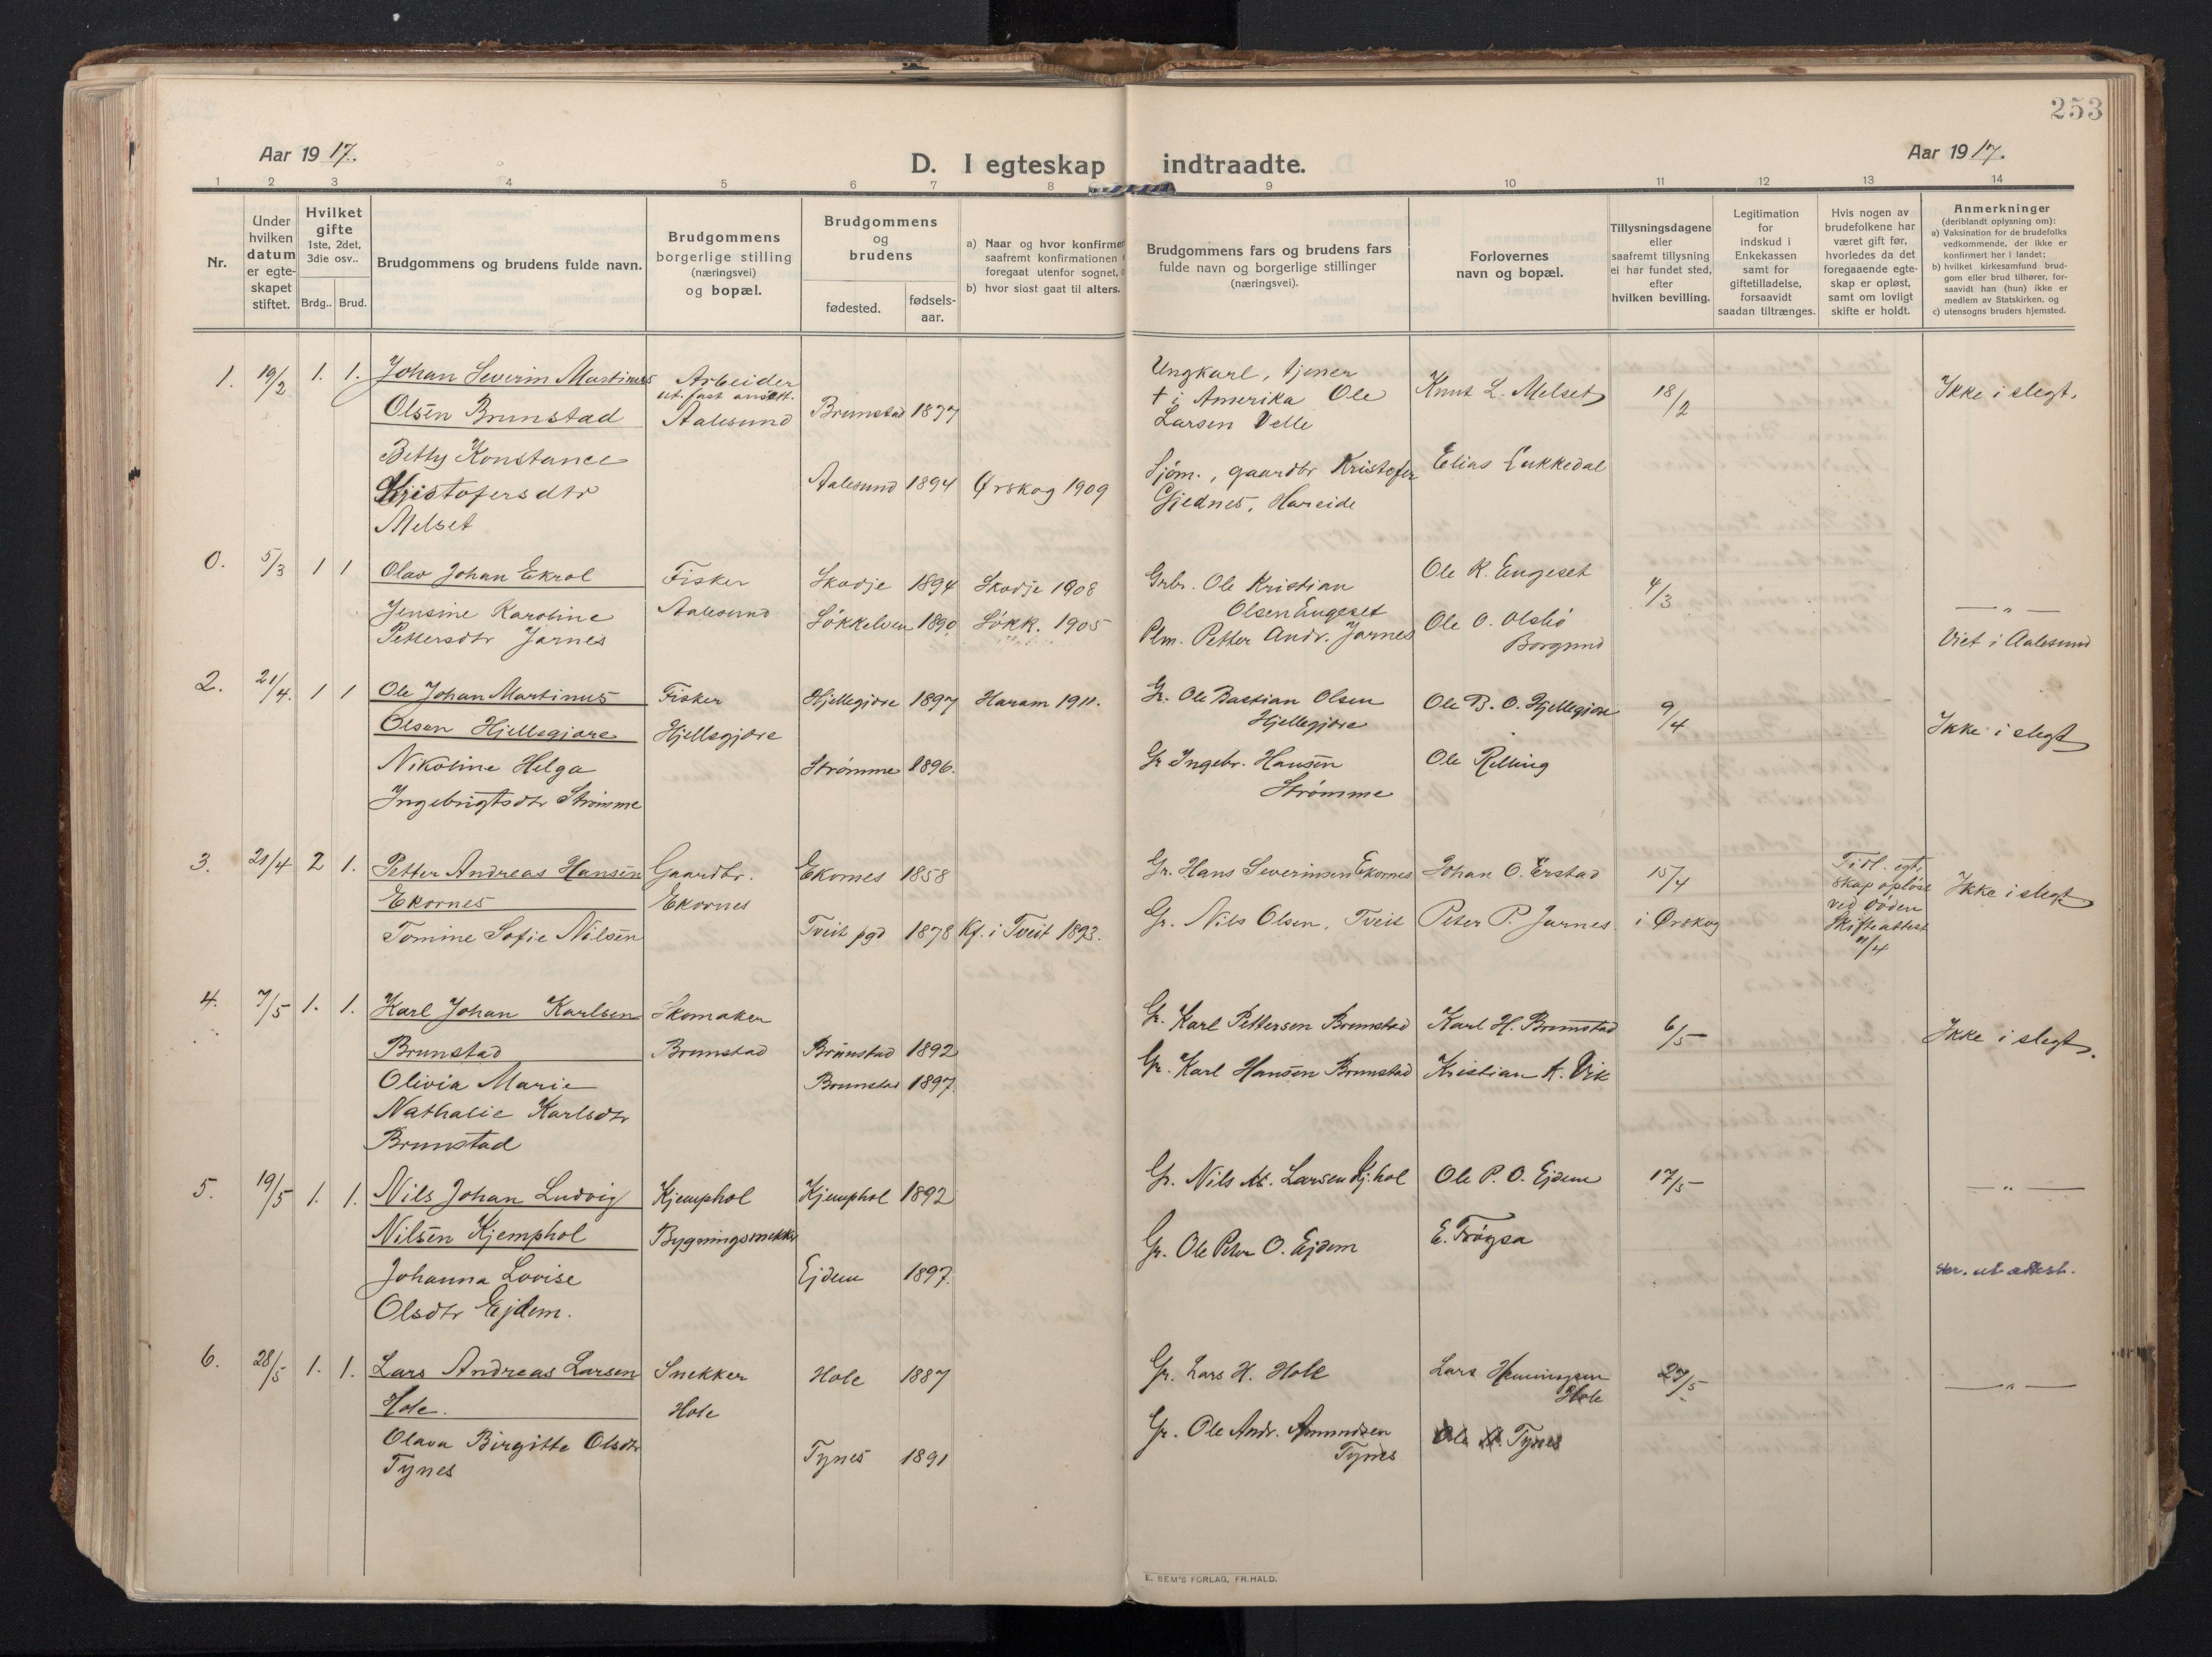 253
Aar 1917.
D. I egteskap indtraadte.
Aar 1917.
1 2 3 4 5 6 7 8 9 10 11 12 13 14
Nr.
Under hvilken datum er egte-skapet stiftet.
Hvilket gifte 1ste, 2det, 3die osv..
Brdg.. Brud.
Brudgommens og brudens fulde navn.
Brudgommens borgerlige stilling (næringsvei) og bopæl.
Brudgommens og brudens
fødested.
fødsels-aar.
a) Naar og hvor konfirmer
saafremt konfirmationen
foregaat utenfor sognet,
b) hvor sidst gaat til alters.
Brudgommens fars og brudens fars
fulde navn og borgerlige stillinger
(næringsvei).
Forlovernes
navn og bopæl.
Tillysningsdagene
eller
saafremt tillysning
ei har fundet sted,
efter
hvilken bevilling.
Legitimation
for
indskud i
Enkekassen
samt for
giftetilladelse,
forsaavidt
saadan tiltrænges.
Hvis nogen av
brudefolkene har
været gift før,
hvorledes da det
foregaaende egte-
skap er opløst,
samt om lovligt
skifte er holdt.
Anmerkninger
(deriblandt oplysning om):
a) Vaksination for de brudefolks
vedkommende, der ikke er
konfirmert her i landet;
b) hvilket kirkesamfund brud-
gom eller brud tilhører, for-
saavidt han (hun) ikke er
medlem av Statskirken, og
c) utensogns bruders hjemsted.
1. 19/2 1. 1. Johan Severin Martinus Arbeider Ungkarl, tjener
ut. fast ansett. † i Amerika Ole Knut L. Melset 18/2 Ikke i slegt.
Olsen Brunstad Aalesund Brunstad 1897 Larsen Velle
Betty Konstance Sjøm., gaardbr Kristofer Elias Lukkedal
Kristofersdtr Aalesund 1894 Ørskog 1909 Gjednes, Hareide
Melset
0. 5/3 1 1 Olav Johan Ekrol Fisker Skodje 1894 Skodje 1908 Grbr. Ole Kristian Ole K. Engeset 4/3
Jensine Karoline Aalesund Søkkelven 1890. Søkk. 1905 Olsen Engeset Ole O. Olsbø — " —
Pettersdtr Jarnes Plm. Petter Andr. Jarnes Borgund Viet i Aalesund
2. 21/4. 1 1 Ole Johan Martinus Fisker Hjellegjære 1897 Haram 1911. Gr. Ole Bastian Olsen Ole B. O. Hjellegjære 9/4
Olsen Hjellegjære Hjellegjære Hjellegjære Ikke i slegt
Nikoline Helga Strømme 1896. Gr Ingebr. Hansen Ole Relling
Ingebrigtsdtr Strømme Strømme
3. 21/4 2 1. Petter Andreas Hansen Gaardbr. Ekornes 1858 Gr. Hans Severinsen Ekornes Johan O. Erstad 15/4 Tidl. egt.
Ekornes Ekornes skap opløst Ikke i slegt
Tomine Sofie Nilsen Tveit pgd 1878 Kf. i Tveit 1893. Gr. Nils Olsen, Tveit Peter P. Jarnes i Ørskog ved døden
Skifteattest
11/4
4. 7/5 1. 1. Karl Johan Karlsen Skomaker Gr. Karl Pettersen Brunstad Karl H. Brunstad 6/5 Ikke i slegt.
Brunstad Brunstad Brunstad 1892
Olivia Marie Brunstad 1897. Gr. Karl Hansen Brunstad Kristian K. Vik
Nathalie Karlsdtr
Brunstad
5. 19/5 1. 1. Nils Johan Ludvig Kjemphol Kjemphol 1892 Gr. Nils M. Larsen Kj.hol Ole P. O. Ejdem 17/5 — " —
Nilsen Kjemphol Bygningssnekker Gr. Ole Peter O. Ejdem
Johanna Lovise Ejdem 1897.
Olsdtr Ejdem.
6. 28/5 1. 1. Lars Andreas Larsen Snekker Hole 1887 Gr. Lars H. Hole Lars Henningsen 27/5 — " —
Hole. Hole Hole
Olava Birgitte Olsdtr Gr. Ole Andr. Amundsen
Tynes Tynes 1891 Tynes Tynes
E. SEM'S FORLAG, FR.HALD.